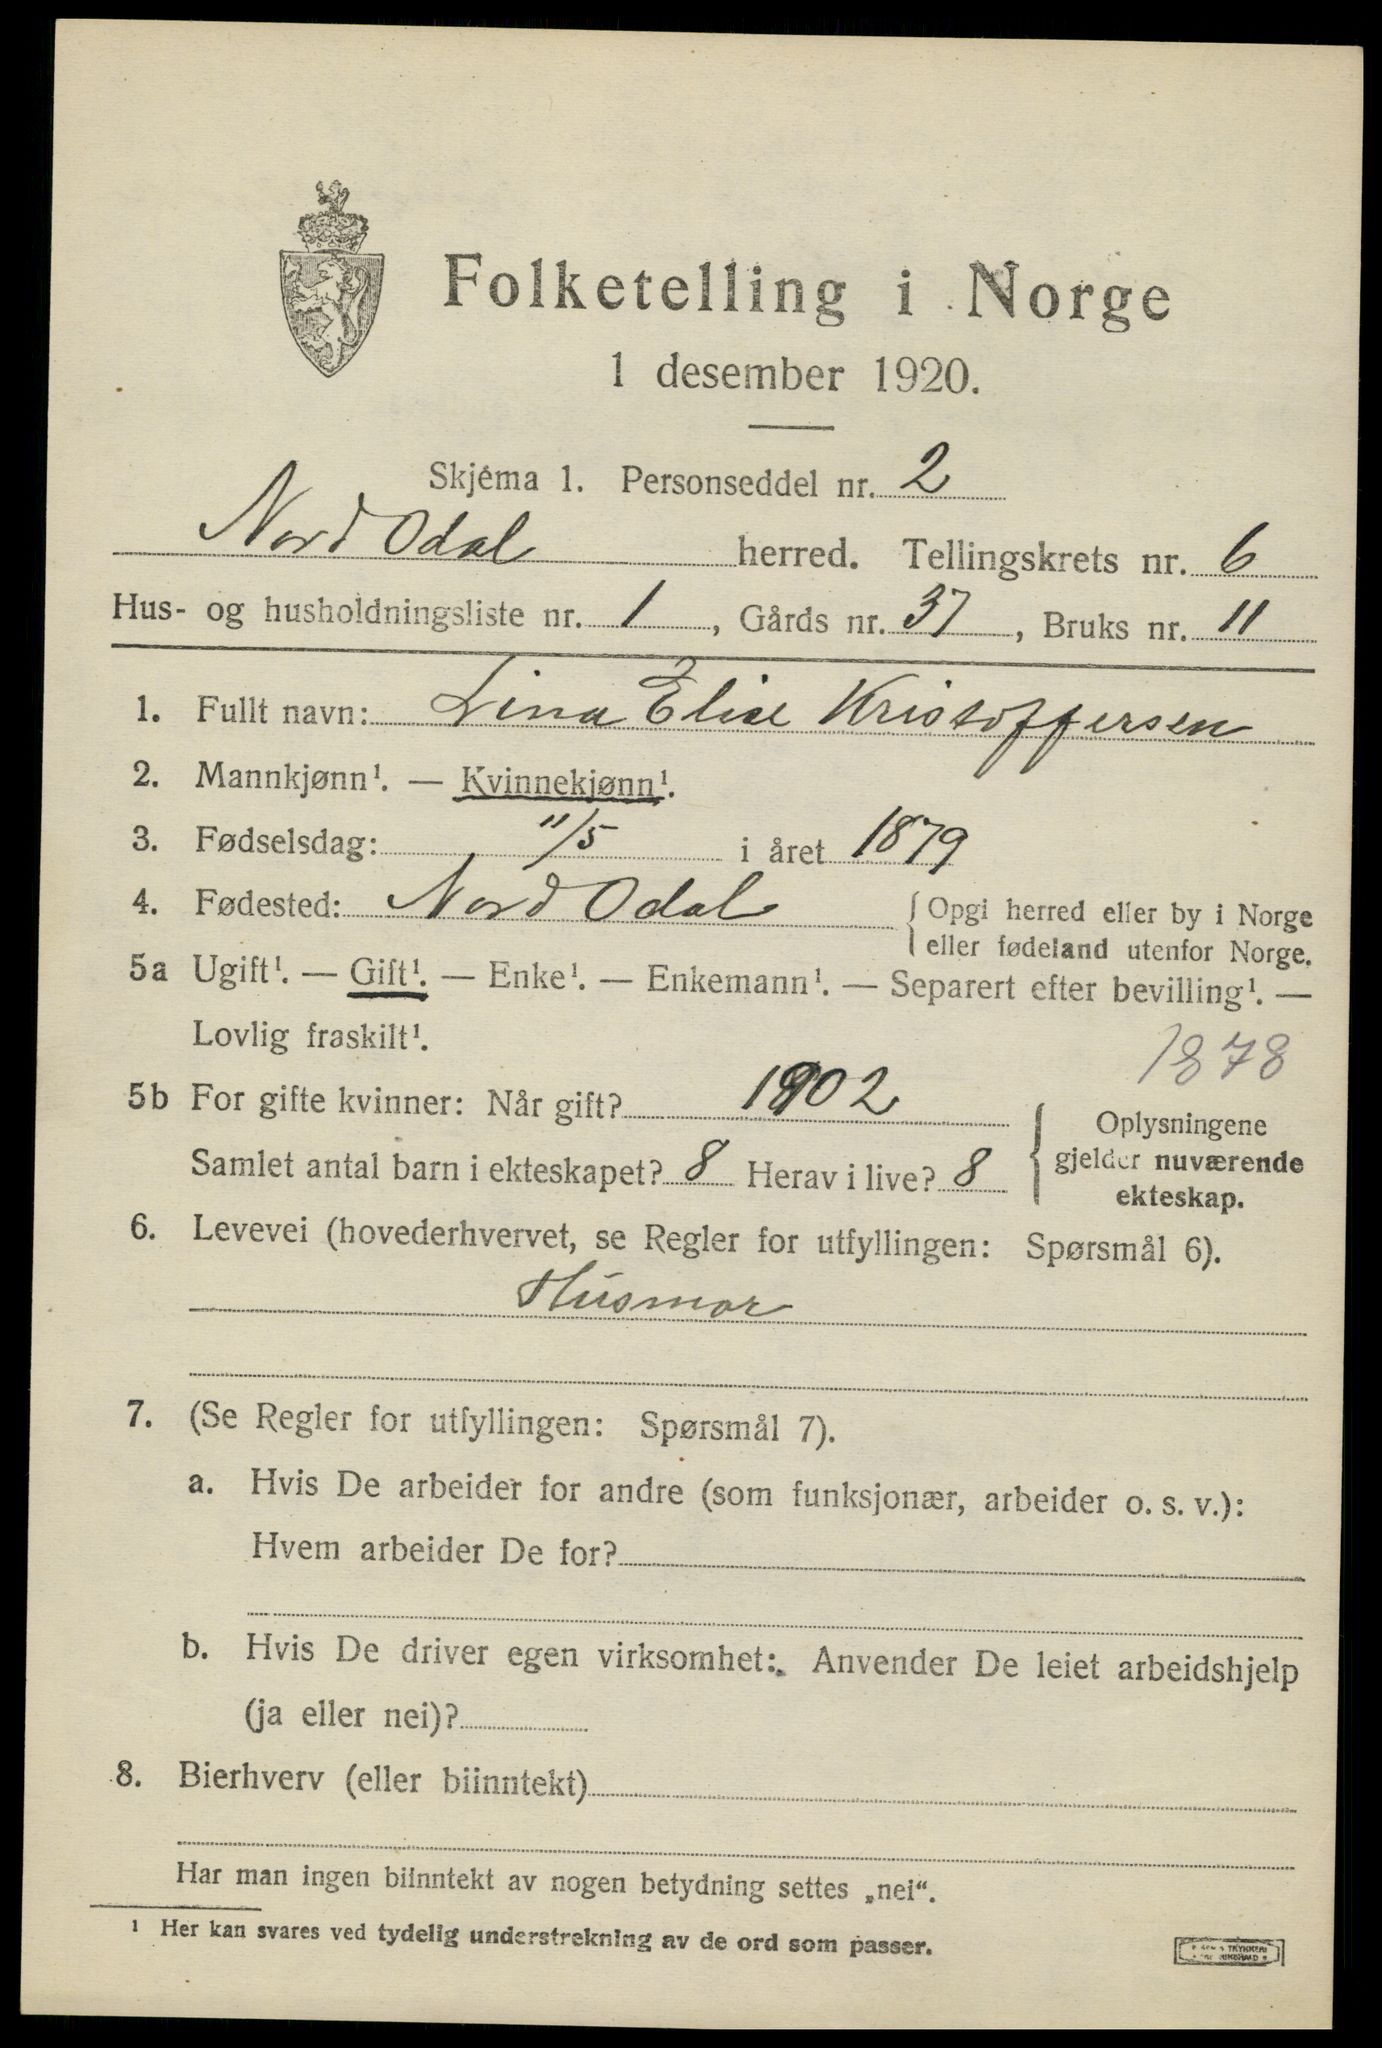 Folketelling i Norge
1 desember 1920.
Skjema 1. Personseddel nr. 2
Nord Odal herred. Tellingskrets nr. 6
Hus- og husholdningsliste nr. 1, Gårds nr. 37, Bruks nr. 11
1. Fullt navn: Lina Elise Kristoffersen
2. Mannkjønn¹. — Kvinnekjønn¹.
3. Fødselsdag: 11/5 i året 1879
4. Fødested: Nord Odal { Opgi herred eller by i Norge
eller fødeland utenfor Norge.
5a Ugift¹. — Gift¹. — Enke¹. — Enkemann¹. — Separert efter bevilling¹. —
Lovlig fraskilt¹.
1878
5b For gifte kvinner: Når gift? 1902
Samlet antal barn i ekteskapet? 8 Herav i live? 8
{ Oplysningene
gjelder nuværende
ekteskap.
6. Levevei (hovederhvervet, se Regler for utfyllingen: Spørsmål 6).
Husmor
7. (Se Regler for utfyllingen: Spørsmål 7).
a. Hvis De arbeider for andre (som funksjonær, arbeider o. s. v.):
Hvem arbeider De for?
b. Hvis De driver egen virksomhet: Anvender De leiet arbeidshjelp
(ja eller nei)?
8. Bierhverv (eller biinntekt)
Har man ingen biinntekt av nogen betydning settes „nei“.
¹ Her kan svares ved tydelig understrekning av de ord som passer.